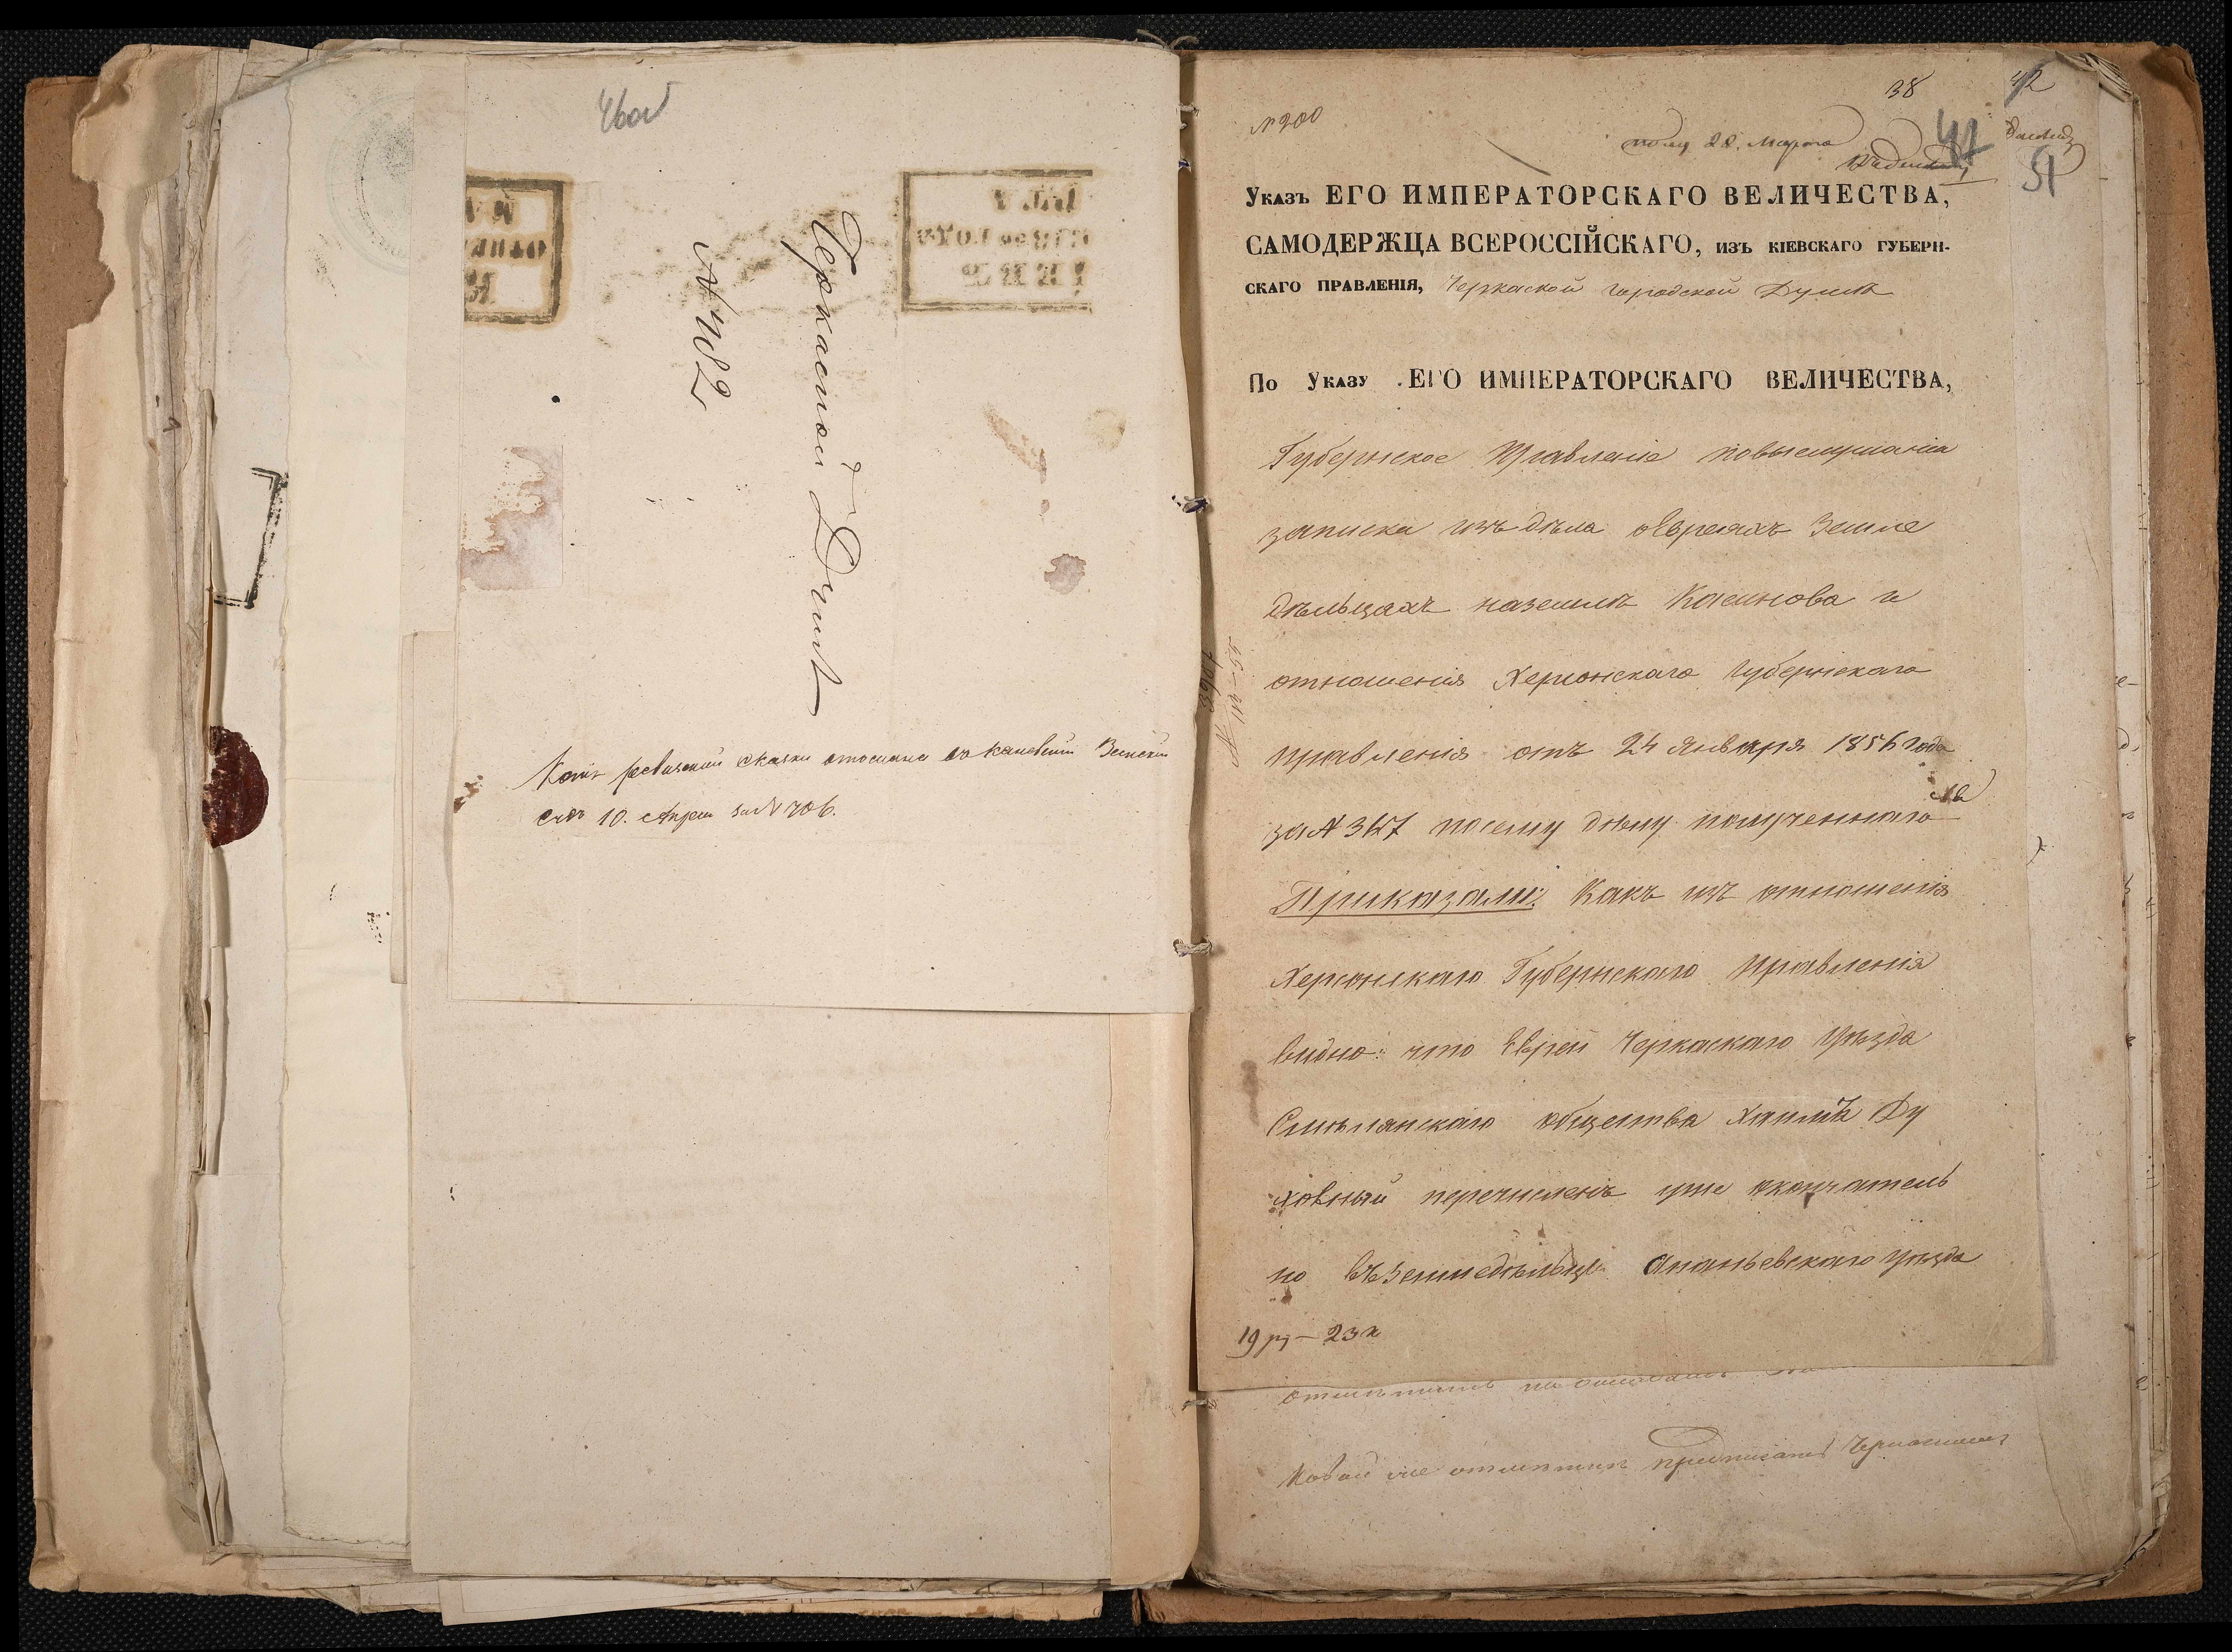 Черкаской Думѣ
№ 1182
Копія ревизской сказки отослана въ Каневскій Земскій
Судъ 10. Апреля за № 706.
№ 200
38
42
полу 28. Марта
41
51
Указъ ЕГО ИМПЕРАТОРСКАГО ВЕЛИЧЕСТВА,
САМОДЕРЖЦА ВСЕРОССІЙСКАГО, изъ кіевскаго губерн-
скаго правленія, Черкаской городской Думѣ
По Указу ЕГО ИМПЕРАТОРСКАГО ВЕЛИЧЕСТВА,
Губернское Правленіе повыслушаніи
записки изъ дѣла оЕвреяхъ Земле
дѣльцахъ наземлѣ Касинова и
отношенія Херсонскаго Губернскаго
правленія отъ 24 Января 1856 года
за № 367 посему дѣлу полученнаго
Приказали: Какъ изъ отношенія
Херсонскаго Губернскаго Правленія
видно: что Еврей Черкаскаго Уѣзда
Смѣлянскаго общества Хаимъ Ду
ховный перечисленъ уже окончатель
но въземледѣльцы Ананьевскаго Уѣзда
19 рз – 23 к
предписать Черкаскому